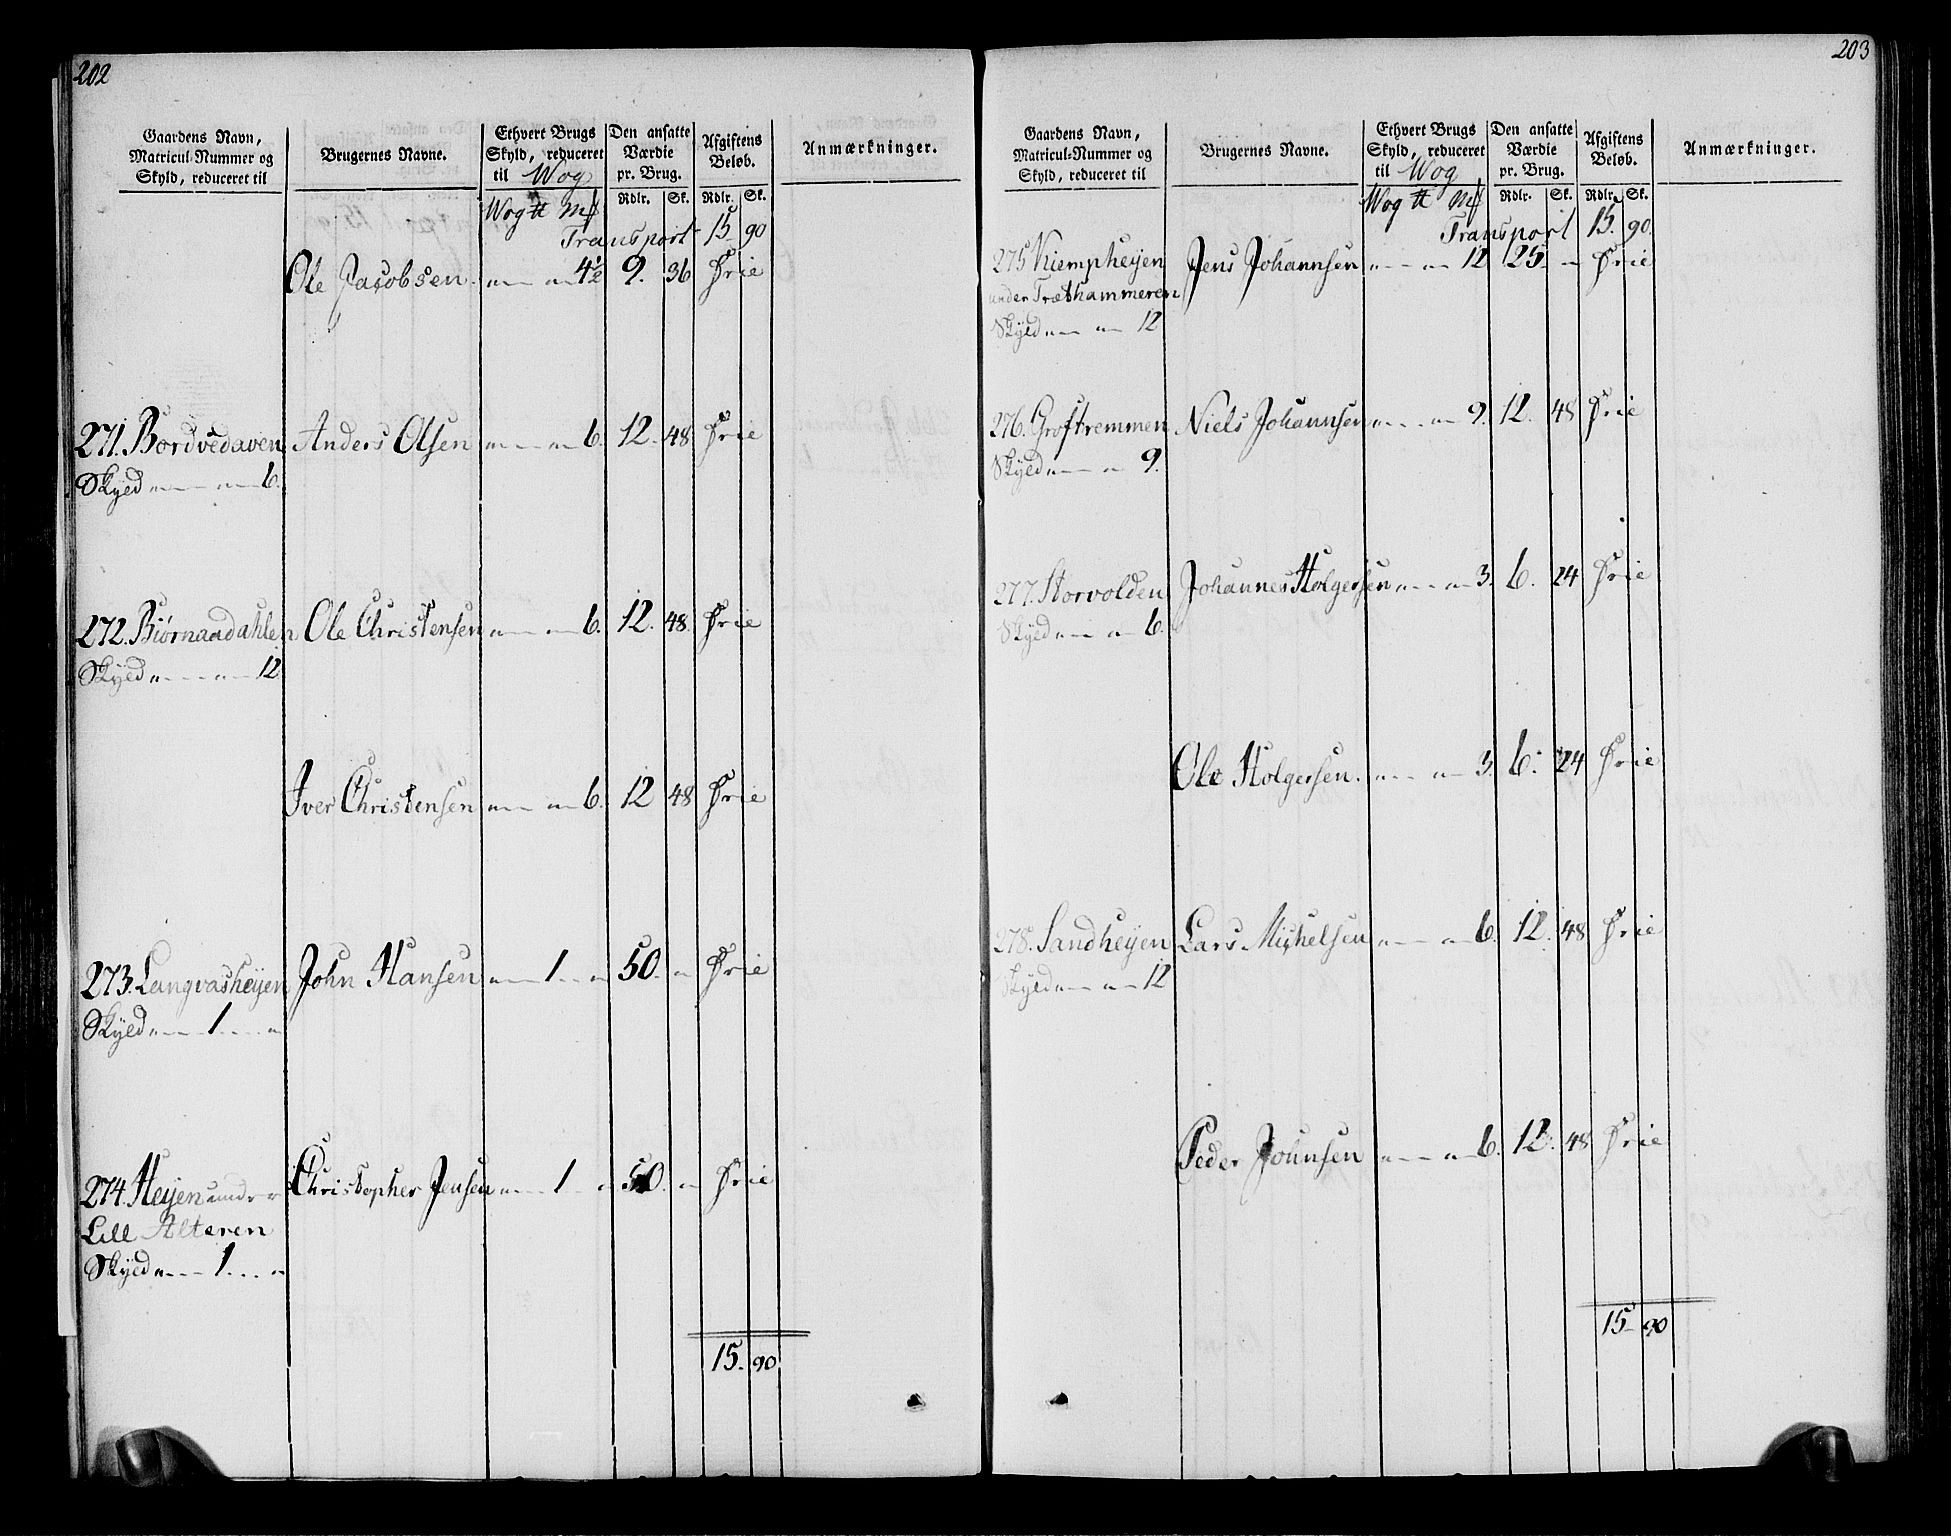 202
Gaardens Navn, Matricul-Nummer og Skyld, reduceret til
Brugernes Navne.
Ethvert Brugs Skyld, reduceret til Wog
Den ansatte Værdie pr. Brug.
Afgiftens Beløb.
Anmærkninger.
Wog ℔ Mk Rdlr. Sk. Rdlr. Sk.
Transport 15 90
Ole Jacobsen. „ — „ — 4½ 9. 36 Frie
271. Bordvedaven Anders Olsen „ — „ — 6. 12. 48 Frie
Skyld „ — „ — 6.
272. Biørnaadahlen Ole Christensen „ — „ — 6. 12. 48. Frie
Skyld „ — „ — 12
Iver Christensen „ — „ — 6. 12 48 Frie
273. Langvasheyen John Hansen „ — 1 — „ 50. „ Frie
Skyld „ — 1 — „
274. Heyen under Christopher Jensen „ — 1 — „ 50 „ Frie
Lill Alteren
Skyld „ — 1 — „
15. 90
203
Gaardens Navn, Matricul-Nummer og Skyld, reduceret til
Brugernes Navne.
Ethvert Brugs Skyld, reduceret til Wog
Den ansatte Værdie pr. Brug.
Afgiftens Beløb.
Anmærkninger.
Wog ℔ Mk Rdlr. Sk. Rdlr. Sk.
Transport 15. 90.
275 Kiempheyen Jens Johannsen „ — „ — 12 25 „ Frie
under Træthammeren
Skyld „ — „ — 12
276. Groftremmen Niels Johannsen „ — „ — 9. 12. 48 Frie
Skyld „ — „ — 9.
277. Storvolden Johannes Holgersen „ — „ — 3. 6. 24 Frie
Skyld „ — „ — 6.
Ole Holgersen. „ — „ — 3. 6. 24 Frie
278. Sandheyen Lars Michelsen „ — „ — 6. 12. 48 Frie
Skyld „ — „ — 12
Peder Johnsen „ — „ — 6. 12. 48 Frie
15 90